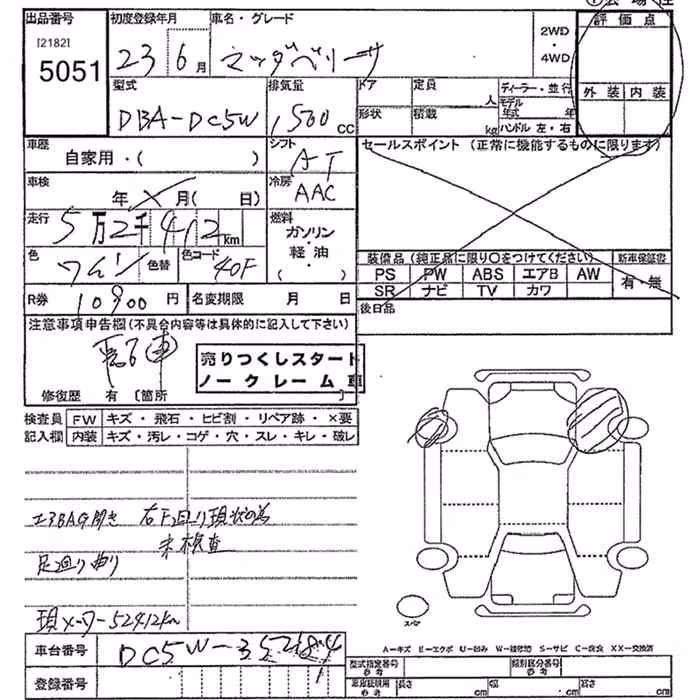 出品番号 初度登録年月 車名・グレード 評価点
[2182] 5051 23 6月 マツダベリーサ 2WD・4WD
型式 排気量 ドア 定員 人 ディーラー・並行 外装 内装
DBA-DC5W 1,500CC 形状 積載 kg モデル年式 年 ハンドル 左・右
車歴 シフト セールスポイント (正常に機能するものに限ります)
自家用・( ) AT
車検 年 月( 日) 冷房 AAC
走行 5万2千412km 燃料 ガソリン・軽油・( )
色 ワイン 色替 色コード 40F
装備品(純正品に限り○をつけてください) 新車保証書
PS PW ABS エアB AW 有・無
SR ナビ TV カワ
R券 10900円 名変期限 月 日 後日品
注意事項申告欄(不具合内容等は具体的に記入して下さい)
売りつくしスタート
ノークレーム車
修復歴 有 〔箇所 〕
検査員 FW キズ・飛石・ヒビ割・リペア跡・×要
記入欄 内装 キズ・汚レ・コゲ・穴・スレ・キレ・破レ
エアBAG開き 右F廻り現状の為
未検査
足回り曲り
現メーター52412km
スペア
車台番号 DC5W-352184
A-キズ E-エクボ U-凹み W-補修跡 S-サビ C-腐食 XX-交換済
登録番号 型式指定番号 参考 類別区分番号 参考
車庫証明用 参考 長さ cm 幅 cm 高さ cm